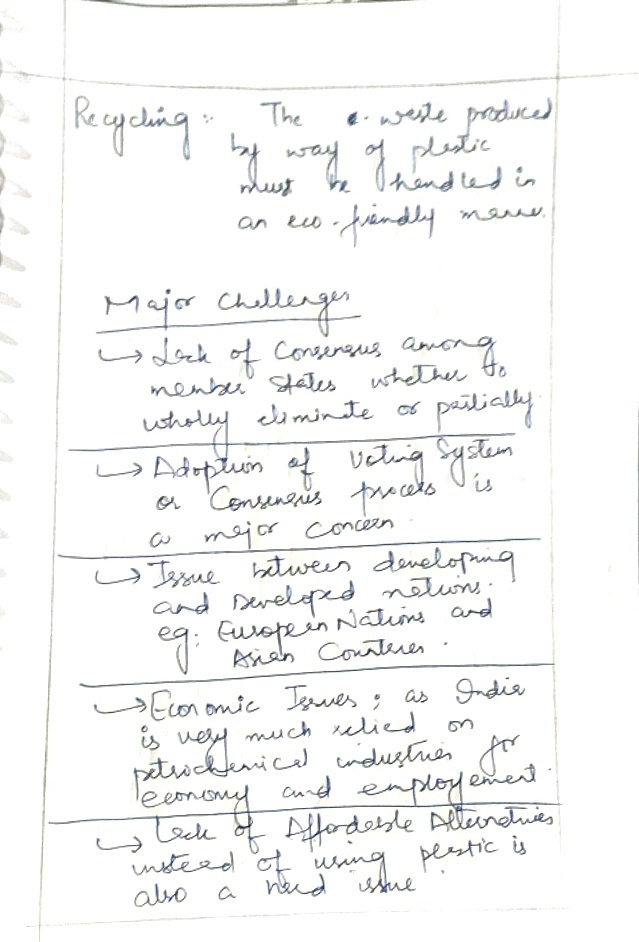 Recycling :- The e-waste produced
by way of plastic
must be handled in
an eco-friendly manner.
Major Challenges
→ Lack of Consensus among
member States whether to
wholly eliminate or partially
→ Adoption of Voting System
or Consensus process is
a major concern
→ Issue between developing
and Developed nations.
eg: European Nations and
Asian Counteries.
→ Economic Issues ; as India
is very much relied on
petrochemical industries for
economy and employement.
→ Lack of Affordable Alternatives
instead of using plastic is
also a issue